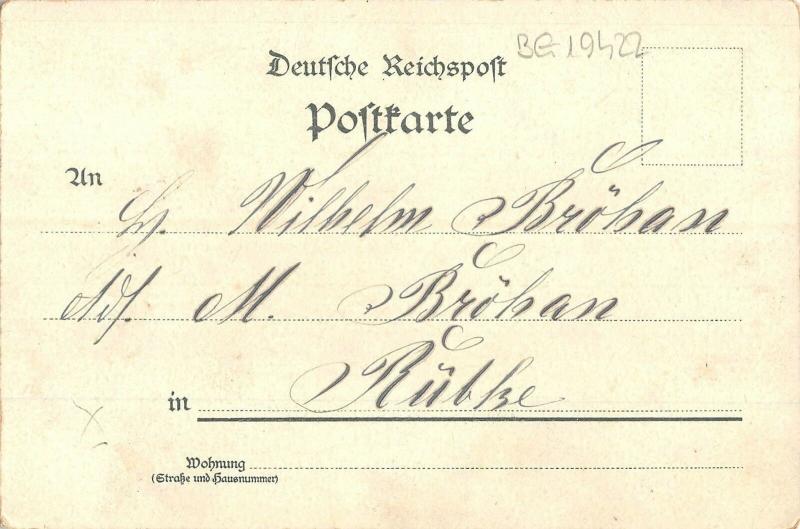 BE 19422
Deutsche Reichspost
Postkarte
An
Wilhelm Bröhan
Adr. M. Bröhan
in Rübke
Wohnung
(Straße und Hausnummer)